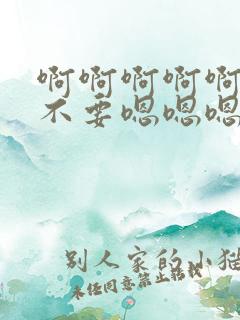 啊啊啊啊啊
不要嗯嗯嗯
别人家的小猫
未经同意禁止转载